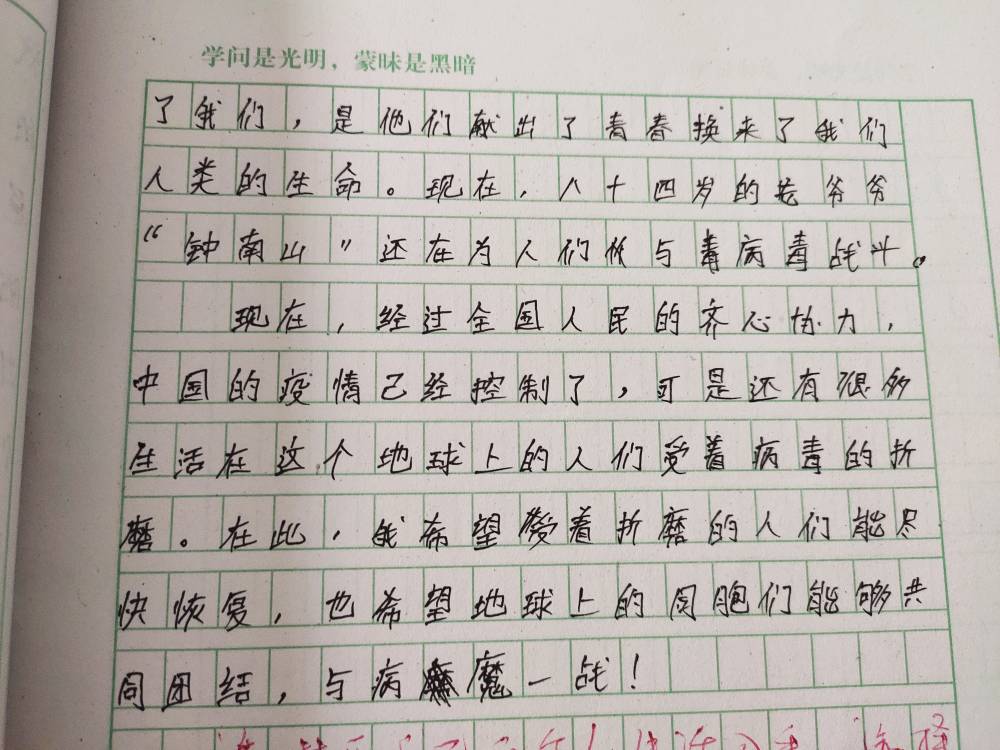 学问是光明，蒙昧是黑暗
了我们，是他们献出了青春换来了我们
人类的生命。现在，八十四岁的老爷爷
“钟南山”还在为人们与毒病毒战斗。
现在，经过全国人民的齐心协力，
中国的疫情已经控制了，可是还有很多
生活在这个地球上的人们受着病毒的折
磨。在此，我希望受着折磨的人们能尽
快恢复，也希望地球上的同胞们能够共
同团结，与病魔一战！